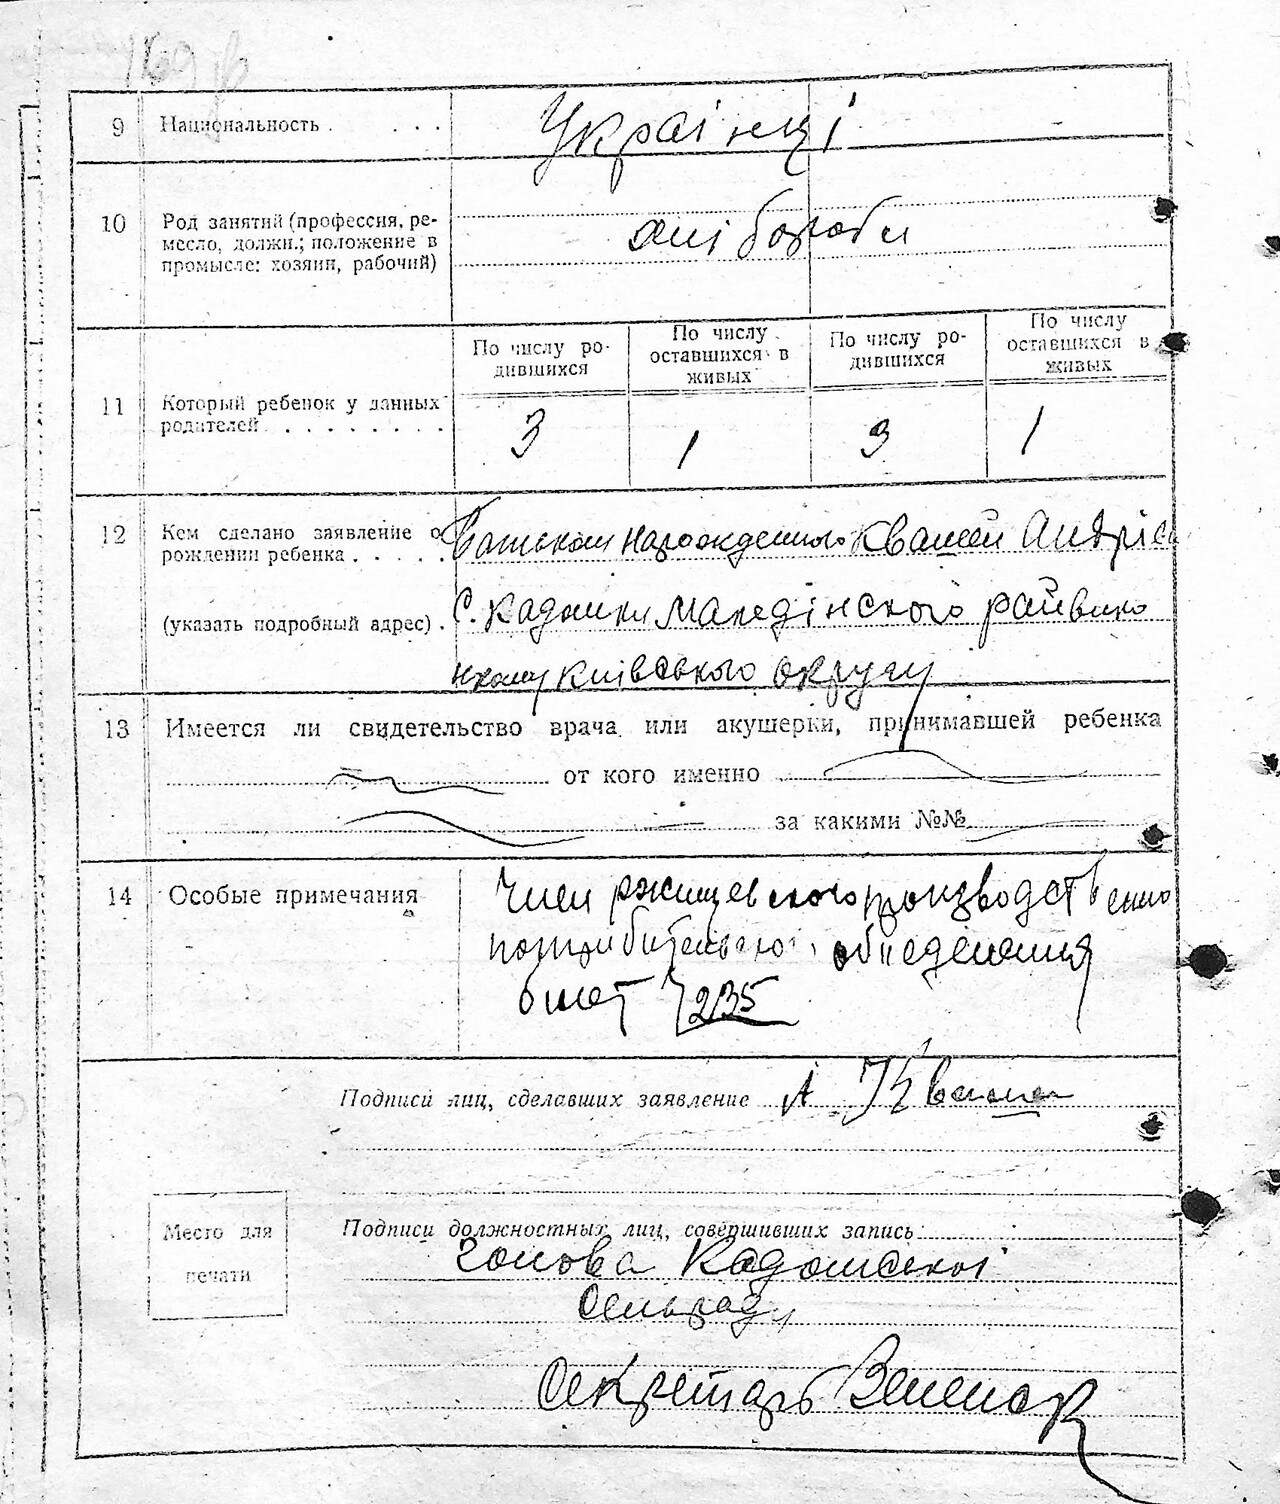 9 Национальность . . . . Українці
10 Род занятий (профессия, ре-
месло, должн.; положение в
промысле: хозяин, рабочий)
хлібороби
По числу ро-
дившихся
По числу
оставшихся в
живых
По числу ро-
дившихся
По числу
оставшихся в
живых
11 Который ребенок у данных
родителей . . . . . . . .
3 1 3 1
12 Кем сделано заявление о
рождении ребенка . . . . .
Батьком народженного Квашей Андрієм
(указать подробный адрес) . С. Кадомки Македінского райвико
нкому Київського округу
13 Имеется ли свидетельство врача или акушерки, принимавшей ребенка
от кого именно
за какими №№
14 Особые примечания
Член ржищевского производственно
потребительного обпеденения
билет 7235
Подписи лиц, сделавших заявление А Кваша
Место для
печати
Подписи должностных лиц, совершивших запись:
Голова Кадомської
Сельрад
Секретарь